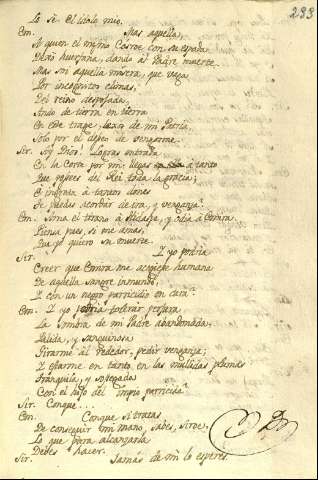 233
Lo sè. El idolo mio.
Em. Mas aquella,
A quien el mismo Cosroe con su espada
Dexò huerfana, dando al Padre muerte.
Mas soi aquella misera, que vaga
Por incognitos climas,
Del reino despojada,
Ando de tierra en tierra
En este trage, lexos de mi Patria,
Solo por el deseo de vengarme.
Sir. Soy Dios! Logras entrada
En la Corte por mi: llegas à tanto
Que posees del Rei toda la gracia;
E ingrata à tantos dones
Te puedes acordar de ira, y venganza?
Em. Ama el tirano à Hidaspe, y odia à Emira.
Piensa pues, si me amas,
Que yo quiero su muerte.
Sir. I yo podria
Creer que Emira me acogiesse humana
De aquella sangre inmundo,
I con un negro parricidio en cara?
Em. I yo podria tolerar perjura
La sombra de mi Padre abandonada,
Palida, y sanguinosa
Girarme al rededor, pedir venganza;
I estarme en tanto en las mullidas plumas
Tranquila, y sosegada
Con el hijo del impio parricida?
Sir. Conque...
Em. Conque si tratas
De conseguir mi mano, sabes, Siroe,
Lo que para alcanzarla
Debes hacer.
Sir. Jamàs de mi lo esperes